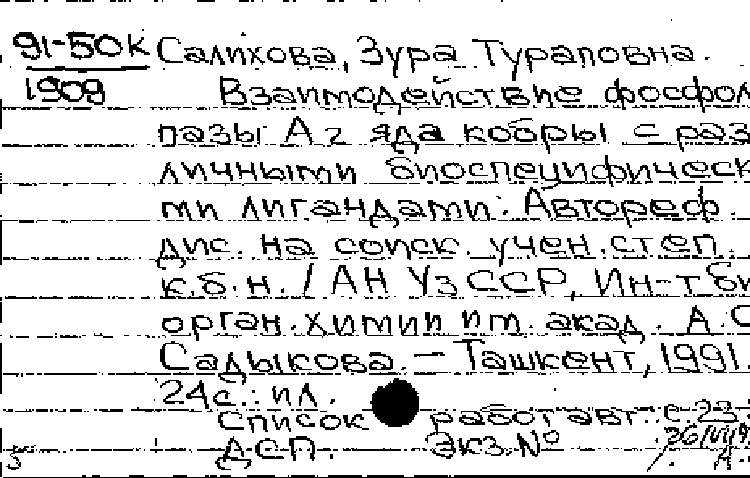 91-50к Салихова, Зура Тураповна.
1909 Взаимодействие фосфол
пазы А2 яда кобры с раз
личными биоспецифическ
ми лигандами: Автореф.
дис. на соиск. учен. степ.
к.б.н. / АН УзССР, Ин-т би
орган. химии им. акад. А.С
Садыкова. – Ташкент, 1991.
24с.: ил.
Список работ авт.: с. 23
ДСП. Экз. №